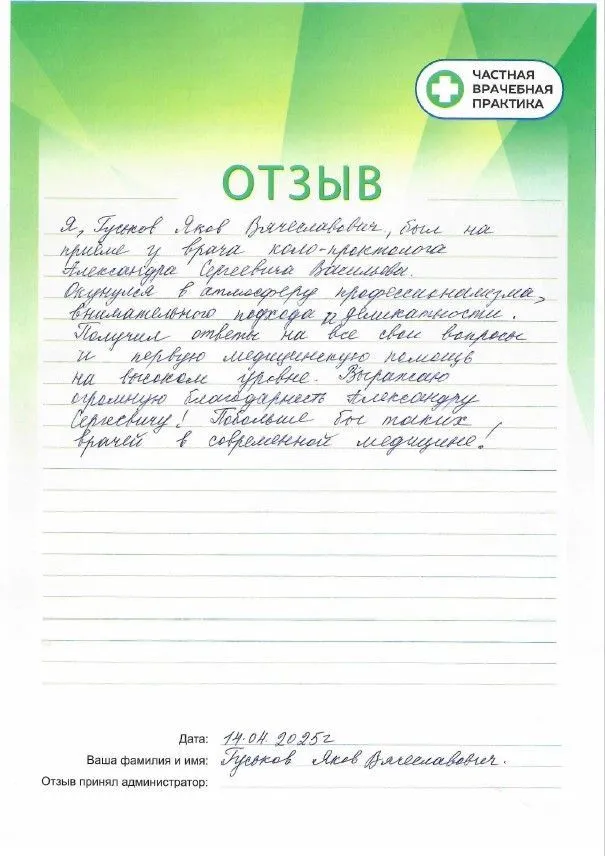 ЧАСТНАЯ
ВРАЧЕБНАЯ
ПРАКТИКА
ОТЗЫВ
Я, Гуськов Яков Вячеславович, был на
приёме у врача коло-проктолога
Александра Сергеевича Васильева.
Окунулся в атмосферу профессионализма,
внимательного подхода и деликатности.
Получил ответы на все свои вопросы
и первую медицинскую помощь
на высоком уровне. Выражаю
огромную благодарность Александру
Сергеевичу! Побольше бы таких
врачей в современной медицине!
Дата: 14.04.2025г
Ваша фамилия и имя: Гуськов Яков Вячеславович.
Отзыв принял администратор: